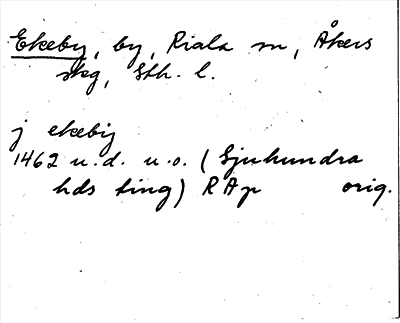 Ekeby, by, Riala sn, Åkers
skg, Sth. l.
j ekebij
1462 u.d. u.o. (Sjuhundra
hds ting) RAp orig.